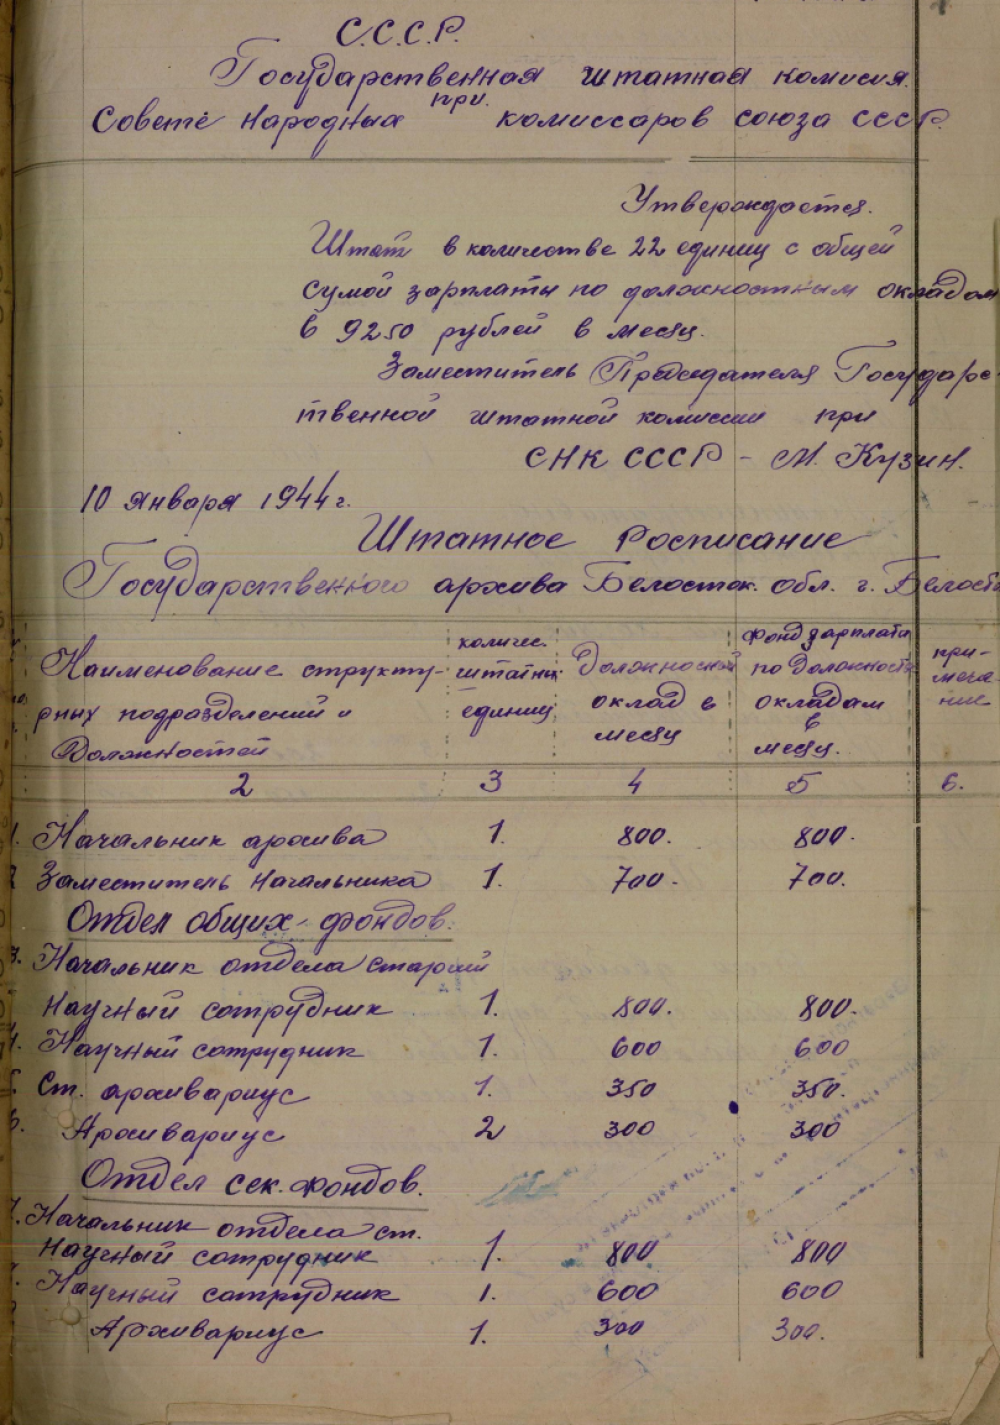 С.С.С.Р.
Государственная штатная комисия.
при.
Совете Народных комиссаров союза СССР.
Утверждается.
Штат в количестве 22 единиц с общей
сумой зарплаты по должностным окладам
в 9250 рублей в месяц.
Заместитель Председателя Государс-
твенной штатной комиссии при
СНК СССР - М. Кузин.
10 января 1944 г.
Штатное росписание
Государственного архива Белосток. обл. г. Белост
Наименование структу-
рных подразделений и
должностей
количес.
штатных
единиц
Должностной
оклад в
месяц
Фонд зарплаты
по должностн
окладам
в
месяц.
при-
меча-
ние
2 3 4 5 6.
1. Начальник архива 1. 800. 800.
2 Заместитель Начальника 1. 700. 700.
Отдел общих фондов.
3. Начальник отдела старший
научный сотрудник 1. 800. 800.
4. Научный сотрудник 1. 600 600
5. Ст. архивариус 1. 350 350.
6. Архивариус 2 300 300
Отдел сек. фондов.
7. Начальник отдела ст.
научный сотрудник 1. 800 800
Научный сотрудник 1. 600 600
Архивариус 1. 300 300.